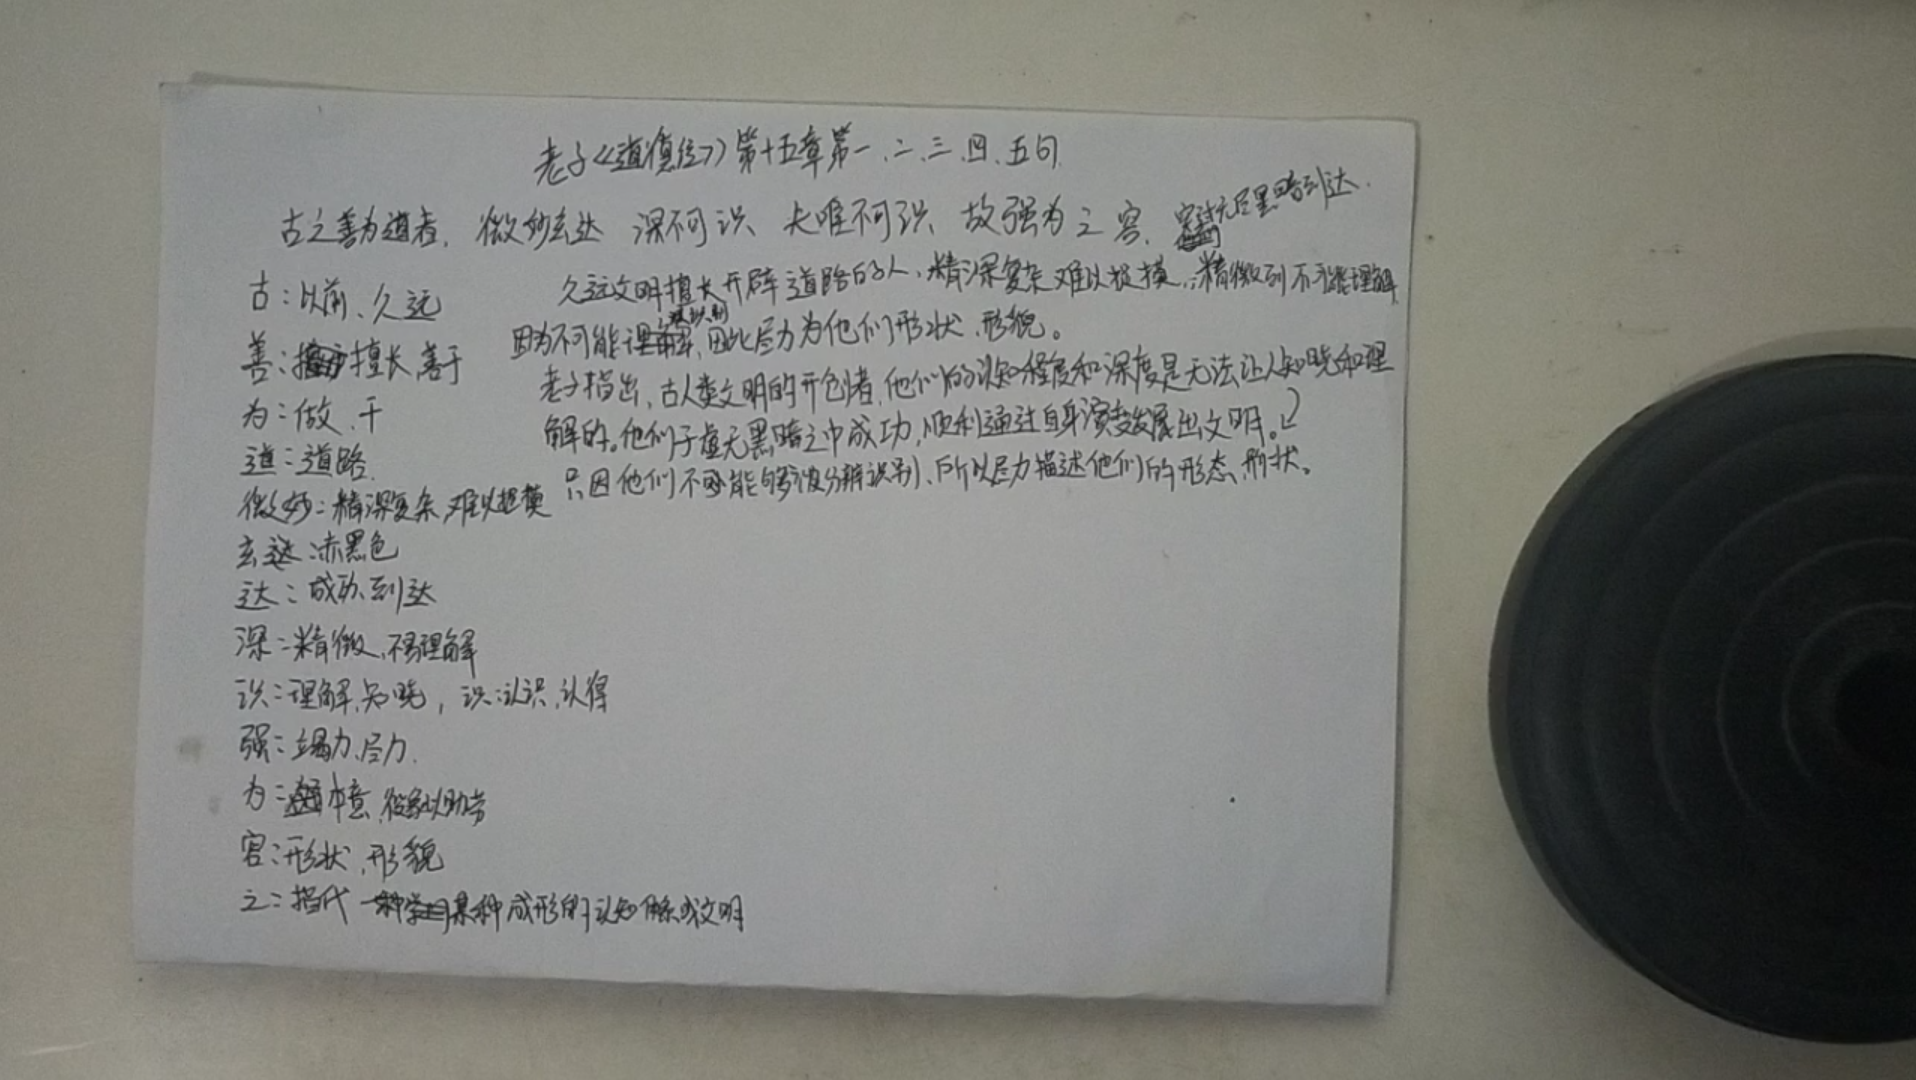 老子《道德经》第十五章第一、二、三、四、五句
古之善为道者、微妙玄达 深不可识、夫唯不可识、故强为之容、
穿过无尽黑暗到达.
久远文明擅长开辟道路的人、精深复杂难以捉摸、精微到不可能理解
因为不可能识别、因此尽力为他们形状、形貌。
老子指出、古人类文明的开创者、他们的认知程度和深度是无法让人知晓和理
解的。他们于虚无黑暗之中成功、顺利通过自身演变发展出文明。
只因他们不可能够被分辨识别、所以尽力描述他们的形态、形状。
古:以前、久远
善:擅长、善于
为:做、干
道:道路.
微妙:精深复杂、难以捉摸
玄:赤黑色
达:成功、到达
深:精微、不易理解
识:理解、知晓, 识:认识、认得
强:竭力、尽力.
为:本意、役象以助劳
容:形状、形貌
之:指代 某种成形的认知体系或文明